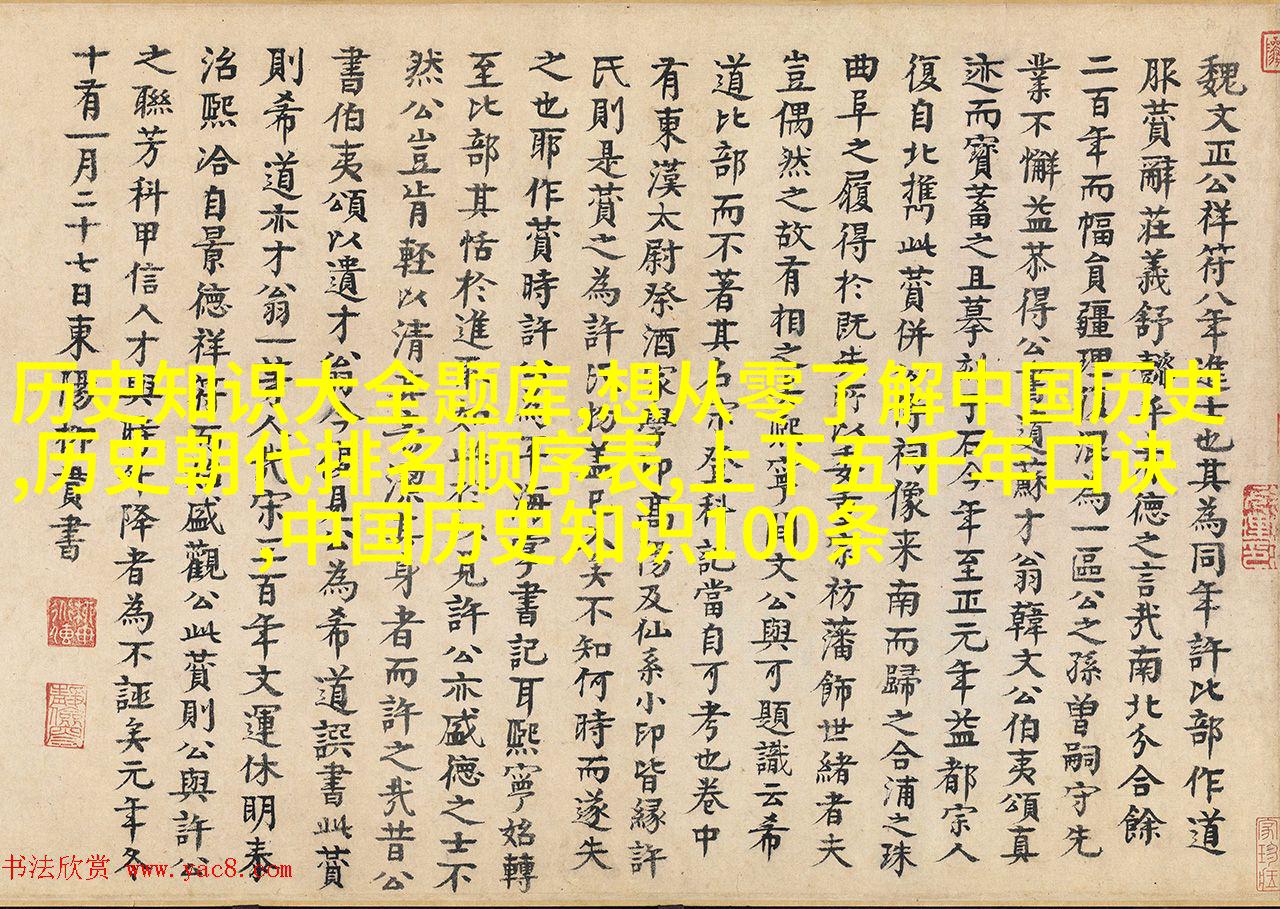 魏文正公祥符八年進士也其為同年許比部作道
服贊辭莊義舒懿乎大德之言哉南北分合餘
二百年而幅員疆理復混為一區公之孫曾嗣守先
業不懈益恭得公書道蘇才翁韓文公伯夷頌真
迹而寶蓄之且摹刻于石今年至正元年益都宗人
復自北携此贊併祠像来南而歸之合浦之珠
曲阜之履得於既失所以宗祊藩飾世緒者夫
豈偶然之故有相之熙寧文公與可題識云希
道比部而不著其名宋登科記當自可考也卷中
有東漢太尉祭酒家學印高陽及仙系小印皆緣許
氏則是贊之為許氏物盖已久矣不知何時而遂失
之也耶作贊時許公為平海書記耳熙寧始轉
至比部其恬於進如此見許公亦盛德之士不
然公豈肯輕以清潔其身者而許之哉昔公
書伯夷頌以遺才翁今為希道譔書此贊
則希道亦才翁一等人宋三百年文運休明泰
治熙洽自景德祥符而盛觀公此贊則公與許公
之聯芳科甲信人才與降者為不誣矣元年冬
十有一月二十七日東陽柳貫書
历史知识大全题库,想从零了解中国历史
,历史朝代排名顺序表,上下五千年口诀
,中国历史知识100条
书法欣赏 www.yac8.com